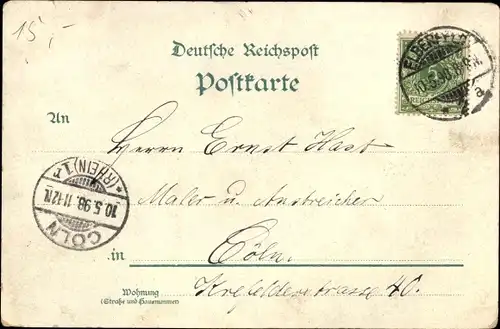 15,-
Deutsche Reichspost
Postkarte
ELBERFELD
10.5.98
a
An
Herrn Ernst Hast
Maler u. Anstreicher
(RHEIN) 1
10.5.98.11-12N.
CÖLN
in Cöln.
Krefelderstrasse 40.
Wohnung
(Straße und Hausnummer)